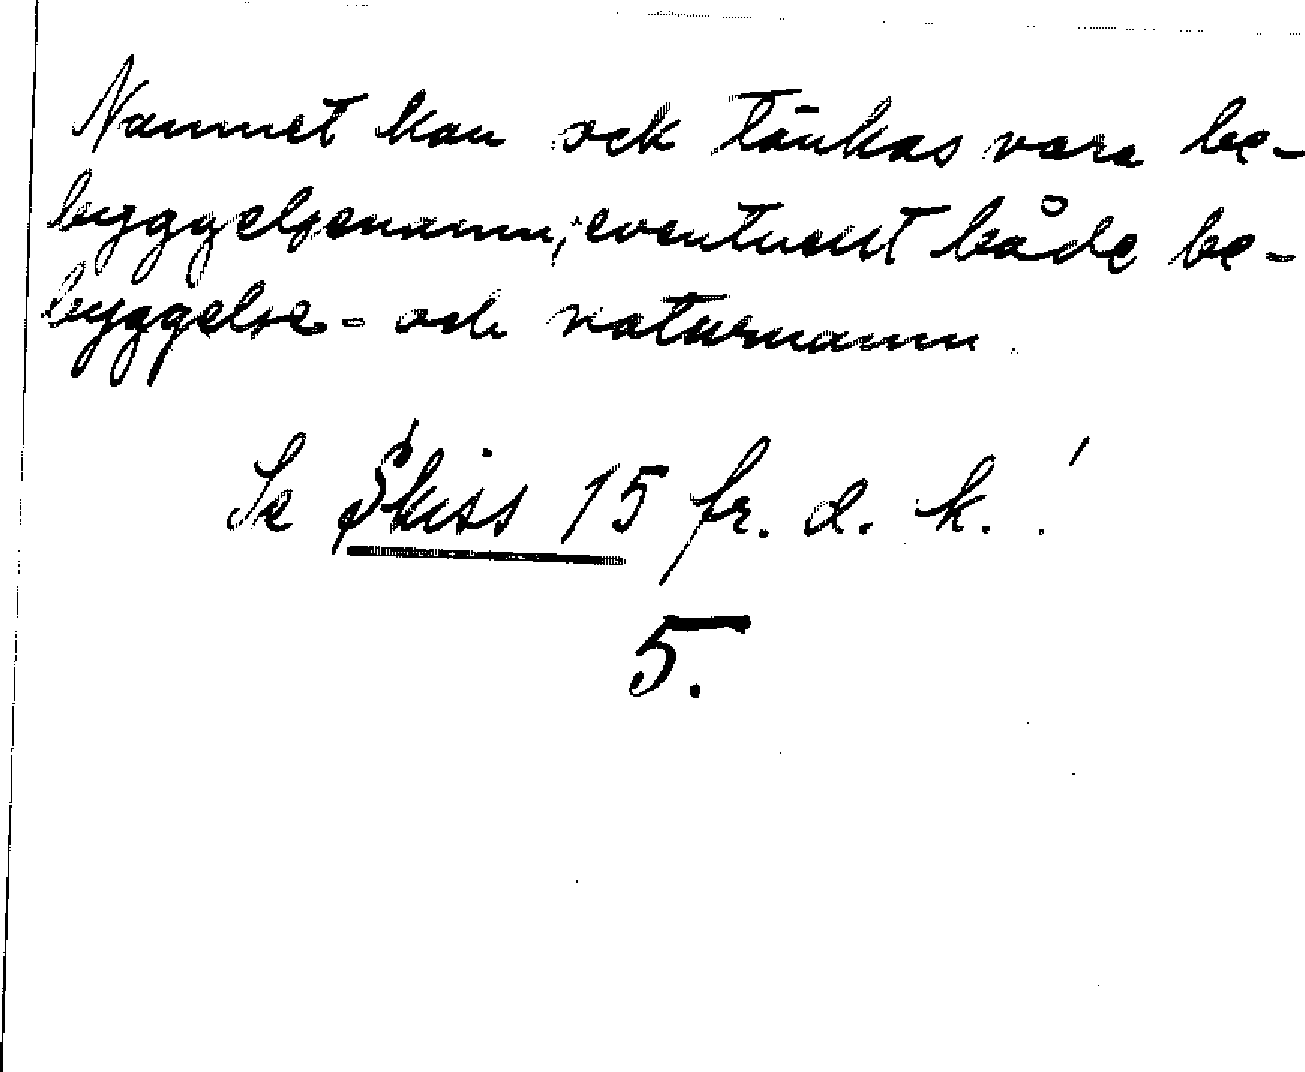 Namnet kan ock tänkas vara be-
byggelsenamn, eventuellt både be-
byggelse- och naturnamn.
Se Skiss 15 fr. d. k.!
5.